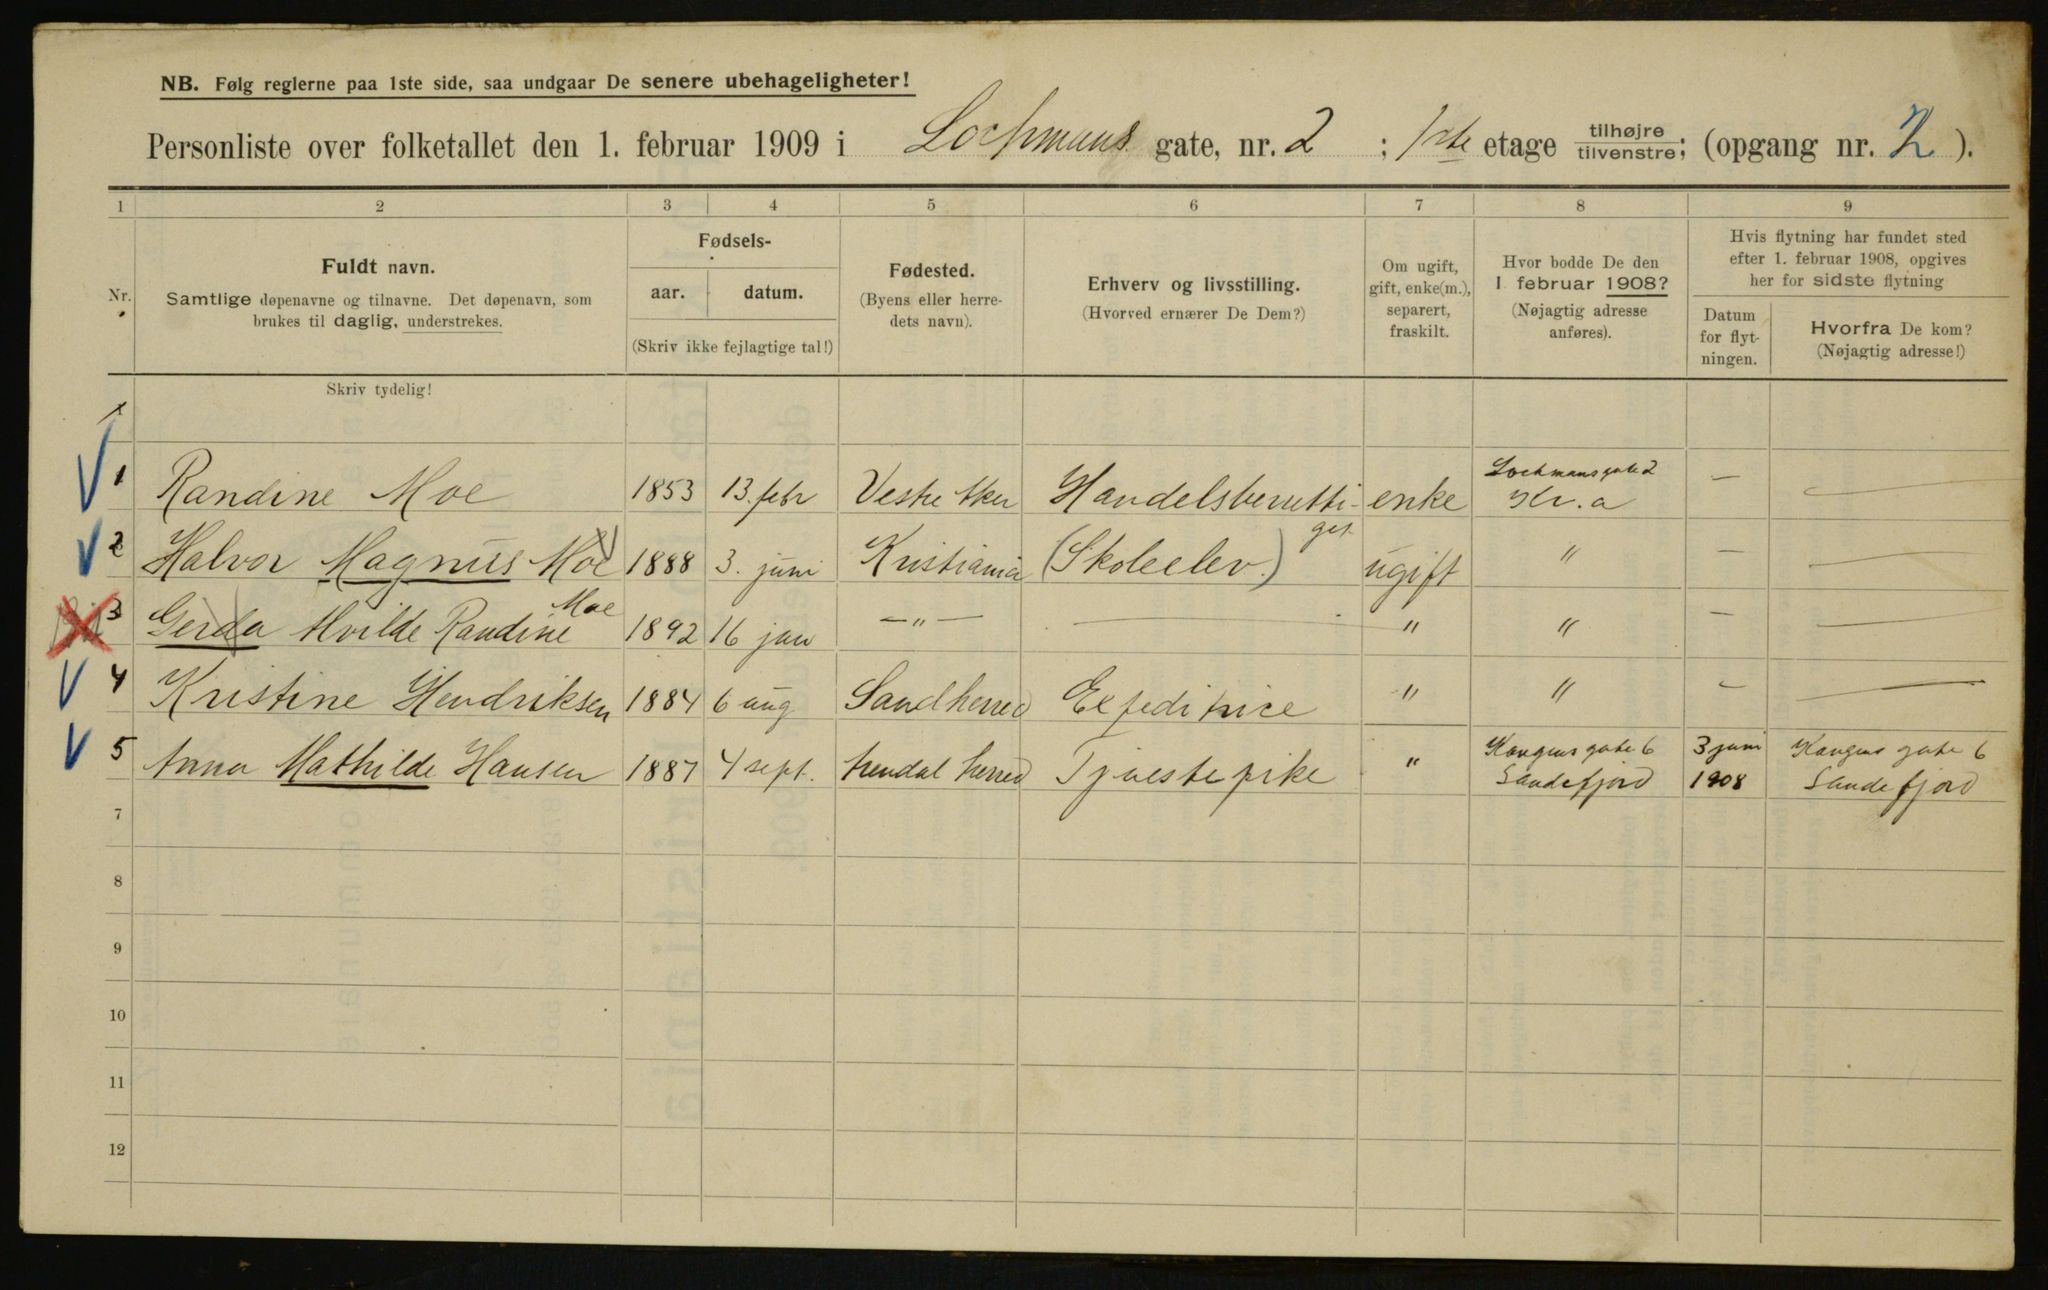 NB. Følg reglerne paa 1ste side, saa undgaar De senere ubehageligheter!
Personliste over folketallet den 1. februar 1909 i Lochmans gate, nr. 2 ; 1ste etage tilhøjre tilvenstre; (opgang nr. 2 ).
1 2 3 4 5 6 7 8 9
Nr.
Fuldt navn.
Samtlige døpenavne og tilnavne. Det døpenavn, som
brukes til daglig, understrekes.
Fødsels-
aar. datum.
(Skriv ikke fejlagtige tal!)
Fødested.
(Byens eller herre-
dets navn).
Erhverv og livsstilling.
(Hvorved ernærer De Dem?)
Om ugift,
gift, enke(m.),
separert,
fraskilt.
Hvor bodde De den
1 februar 1908?
(Nøjagtig adresse
anføres).
Hvis flytning har fundet sted
efter 1. februar 1908, opgives
her for sidste flytning
Datum
for flyt-
ningen.
Hvorfra De kom?
(Nøjagtig adresse!)
Skriv tydelig!
1
1 Randine Moe 1853 13. febr Vestre Aker Handelsberetti- enke Lochmansgate 2 Kr.a —
get
2 Halvor Magnus Moe 1888 3. juni Kristiania (Skoleelev.) ugift " —
3 Gerda Hvilde Randine Moe 1892 16 jan —"— — " " —
4 Kristine Hendriksen 1884 6 aug Sandherred Expeditrice " " —
5 Anna Mathilde Hansen 1887 4 sept. herred Tjenestepike " Kongens gate 6 Sandefjord 3 juni 1908 Kongens gate 6 Sandefjord
7
8
9
10
11
12